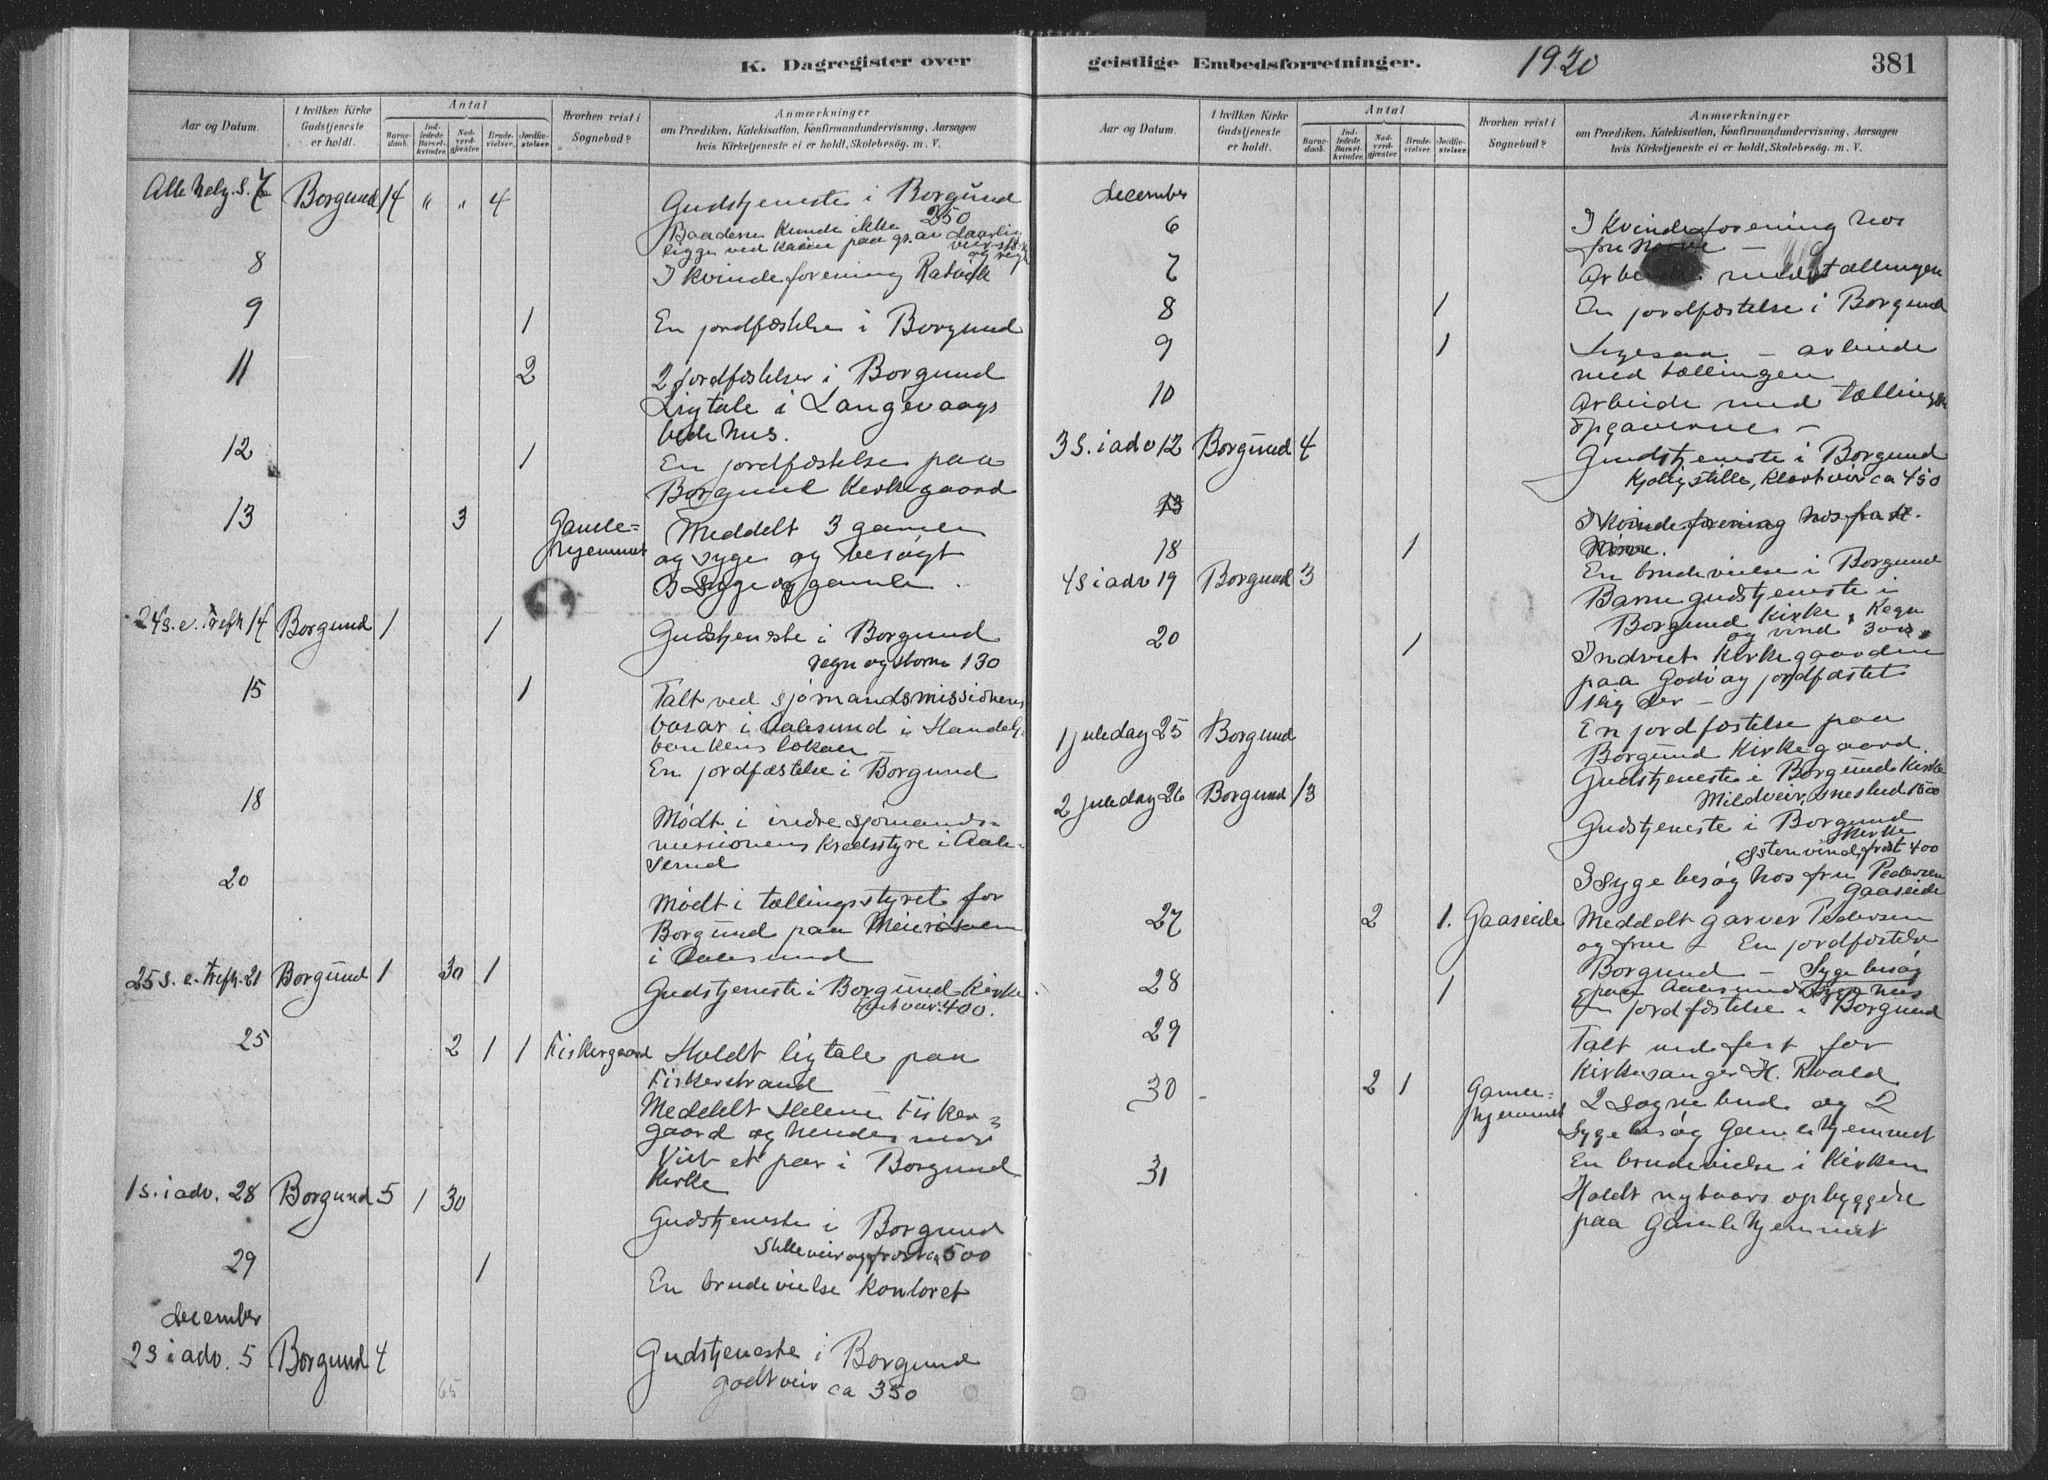 K. Dagregister over
Aar og Datum.
I hvilken Kirke Gudstjeneste er holdt.
Antal
Barnedaab.
Indledede Barselkvinder.
Nadverdgjæster
Brudevielser.
Jordfæstelser.
Hvorhen reist i Sognebud?
Anmærkninger
om Prædiken, Katekisation, Konfirmandundervisning, Aarsagen
hvis Kirketjeneste ei er holdt, Skolebesøg. m. V.
Alle helg. s. 7 Borgund 14 " " 4 Gudstjeneste i Borgund
250
Baadene kunde ikke
ligge ved kaien paa gr. av daarlig
8 I kvindeforening Ratvik
9 1 En jordfæstelse i Borgund
11 2 2 jordfæstelser i Borgund
Ligtale i Langevaags
bedehus.
12 1 En jordfæstelse paa
Borgund Kirkegaard
13 3 Gamle= Meddelt 3 gamle
hjemmet og syge og besøgt
3 syge og gamle.
24 s. e. Trefh 14 Borgund 1 1 Gudstjeneste i Borgund
regn og storm 130
15 1 Talt ved sjømandsmissionens
basar i Aalesund i Handels
bankens lokaler
En jordfæstelse i Borgund
18 Mødt i indre sjømands=
missionens kredsstyre i Aale=
sund
20 Mødt i tællingsstyret for
Borgund paa Meieriskolen
i Aalesund
25 s. e. trefh. 21 Borgund 1 30 1 Gudstjeneste i Borgund Kirke
400.
25 2 1 1 Fiskergaard Holdt ligtale paa
Fiskerstrand
Meddelt Helene Fisker=
gaard og hendes mor
Viet et par i Borgund
Kirke
1 s. i adv. 28 Borgund 5 1 30 Gudstjeneste i Borgund
Stille veir og frost ca 500
29 1 En brudevielse kontoret
December
2 s i adv. 5 Borgund 4 Gudstjeneste i Borgund
godt veir ca 350
65
geistlige Embedsforretninger.
1920
381
Aar og Datum.
I hvilken Kirke Gudstjeneste er holdt.
Antal
Barnedaab.
Indledede Barselkvinder.
Nadverdgjæster
Brudevielser.
Jordfæstelser.
Hvorhen reist i Sognebud?
Anmærkninger
om Prædiken, Katekisation, Konfirmandundervisning, Aarsagen
hvis Kirketjeneste ei er holdt, Skolebesøg. m. V.
December
6 I kvindeforening hos
fru Nørve –
7 Arbeide med tællingen
8 1 En jordfæstelse i Borgund
9 1 Ligesaa – arbeide
med tællingen
10 Arbeide med tællings
opgaverne –
3 s. i adv 12 Borgund 4 Gudstjeneste i Borgund
Kjølig stille, klart veir ca 450
13 I kvindeforening hos fru
Nørve.
18 1 En brudevielse i Borgund
4 s i adv 19 Borgund 3 Barnegudstjeneste i
Borgund Kirke. Regn
og vind 300
20 1 Indviet Kirkegaarden
paa Godø og jordfæstet
1 lig der –
En jordfæstelse paa
Borgund Kirkegaard.
1 juledag 25 Borgund Gudstjeneste i Borgund Kirke
Mildveir, sneslud 1500
2 juledag 26 Borgund 13 Gudstjeneste i Borgund
Kirke
Østenvind, frost 400
I sygebesøg hos fru Pedersen
Gaaseide
27 2 1. Gaaseide Meddelt garver Pedersen
og frue – En jordfæstelse
Borgund – Sygebesøg
28 1 paa Aalesunds sygehus
En jordfæstelse i Borgund
29 Talt ved fest for
Kirkesanger H. Roald
30 2 1 Gamle= 2 sognebud og 2
hjemmet Sygebesøg Gamlehjemmet
En brudevielse i Kirken
31 Holdt nytaars opbyggelse
paa Gamlehjemmet